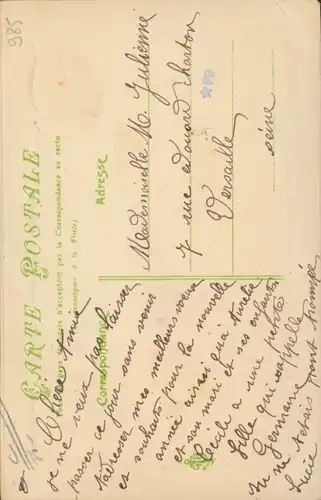 985
CARTE POSTALE
n'acceptent pas la Correspondance au recto
Correspondance
Adresse
Mademoiselle M. Julienne
7 rue Edouard Charton
Versaille
Seine
Chère amie
Je ne veux pas laisser
passer ce jour sans vous
adresser mes meilleurs voeux
et souhaits pour la nouvelle
année ainsi qu'à
et son mari et ses enfants
Cécile a une petite
fille qui s'appelle
Germaine
tu ne t'étais pont trompée
Lucie